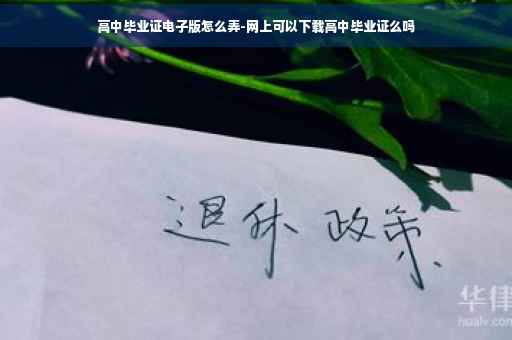 高中毕业证电子版怎么弄-网上可以下载高中毕业证么吗
退休 政策
华律
hualv.com